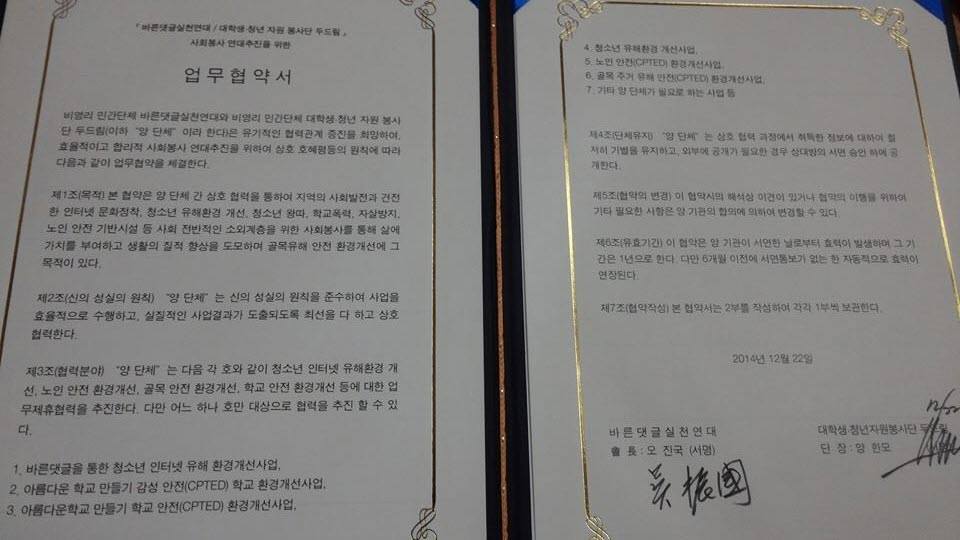 『바른댓글실천연대 / 대학생·청년 자원 봉사단 두드림』
사회봉사 연대추진을 위한
업무협약서
비영리 민간단체 바른댓글실천연대와 비영리 민간단체 대학생·청년 자원 봉사
단 두드림(이하 “양 단체”이라 한다)은 유기적인 협력관계 증진을 희망하여,
효율적이고 합리적 사회봉사 연대추진을 위하여 상호 호혜평등의 원칙에 따라
다음과 같이 업무협약을 체결한다.
제1조(목적) 본 협약은 양 단체 간 상호 협력을 통하여 지역의 사회발전과 건전
한 인터넷 문화정착, 청소년 유해환경 개선, 청소년 왕따, 학교폭력, 자살방지,
노인 안전 기반시설 등 사회 전반적인 소외계층을 위한 사회봉사를 통해 삶에
가치를 부여하고 생활의 질적 향상을 도모하며 골목유해 안전 환경개선에 그
목적이 있다.
제2조(신의 성실의 원칙) “양 단체”는 신의 성실의 원칙을 준수하여 사업을
효율적으로 수행하고, 실질적인 사업결과가 도출되도록 최선을 다 하고 상호
협력한다.
제3조(협력분야) “양 단체”는 다음 각 호와 같이 청소년 인터넷 유해환경 개
선, 노인 안전 환경개선, 골목 안전 환경개선, 학교 안전 환경개선 등에 대한 업
무제휴협력을 추진한다. 다만 어느 하나 호만 대상으로 협력을 추진 할 수 있
다.
1. 바른댓글을 통한 청소년 인터넷 유해 환경개선사업,
2. 아름다운 학교 만들기 감성 안전(CPTED) 학교 환경개선사업,
3. 아름다운학교 만들기 학교 안전(CPTED) 환경개선사업,
4. 청소년 유해환경 개선사업,
5. 노인 안전(CPTED) 환경개선사업,
6. 골목 주거 유해 안전(CPTED) 환경개선사업,
7. 기타 양 단체가 필요로 하는 사업 등
제4조(단체유지) “양 단체”는 상호 협력 과정에서 취득한 정보에 대하여 철
저히 기별을 유지하고, 외부에 공개가 필요한 경우 상대방의 서면 승인 하에 공
개한다.
제5조(협약의 변경) 이 협약서의 해석상 이견이 있거나 협약의 이행을 위하여
기타 필요한 사항은 양 기관의 합의에 의하여 변경할 수 있다.
제6조(유효기간) 이 협약은 양 기관이 서면한 날로부터 효력이 발생하며 그 기
간은 1년으로 한다. 다만 6개월 이전에 서면통보가 없는 한 자동적으로 효력이
연장된다.
제7조(협약작성) 본 협약서는 2부를 작성하여 각각 1부씩 보관한다.
2014년 12월 22일
바른댓글실천연대
會長 : 오 진국 (서명)
吴振國
대학생·청년자원봉사단 두드림
단 장 : 양 한모
12/22